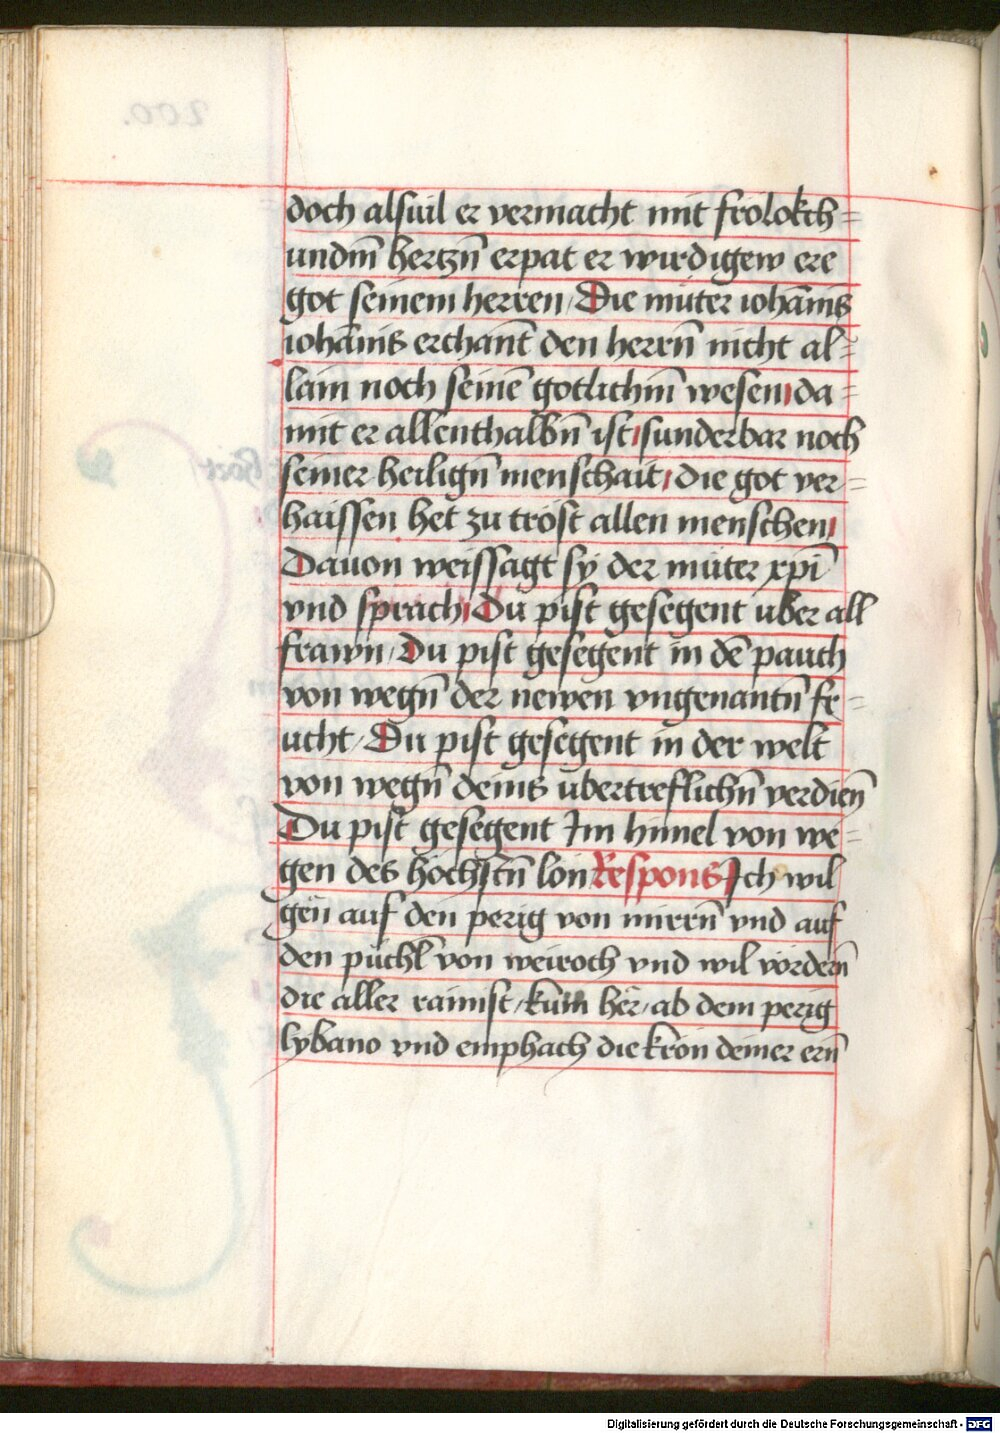 doch alsuil er vermacht mit frölokch=
undm̄ hertzn̄ erpat er wirdigew ere
got seinem herren / Die müter iohānis
iohānis erchant̄ den herrn̄ nicht al=
lain noch seinē gotlichm̄ wesen da=
mit er allenthalbn̄ ist sunderbar noch
seiner heilign̄ menschait / die got ver=
haissen het zu tröst allen menschen
Dauon weissagt sy der müter xp̄i
vnd sprach Du pist gesegent uber all
frawn / Du pist gesegent in dē pauch
von wegn̄ der newen vngenantn̄ fr=
ucht / Du pist gesegent in der welt
von wegn̄ deins übertreflichn̄ verdien̄
Du pist gesegent Im himel von we=
gen des höchstn̄ lon Respons Ich wil
gen auf den perig von mirrn̄ vnd auf
den püchl̄ von weiroch vnd wil vördern̄
die aller rainist / kum her / ab dem perig
lybano vnd emphach die kron deiner ern̄
200.
Digitalisierung gefördert durch die Deutsche Forschungsgemeinschaft - DFG